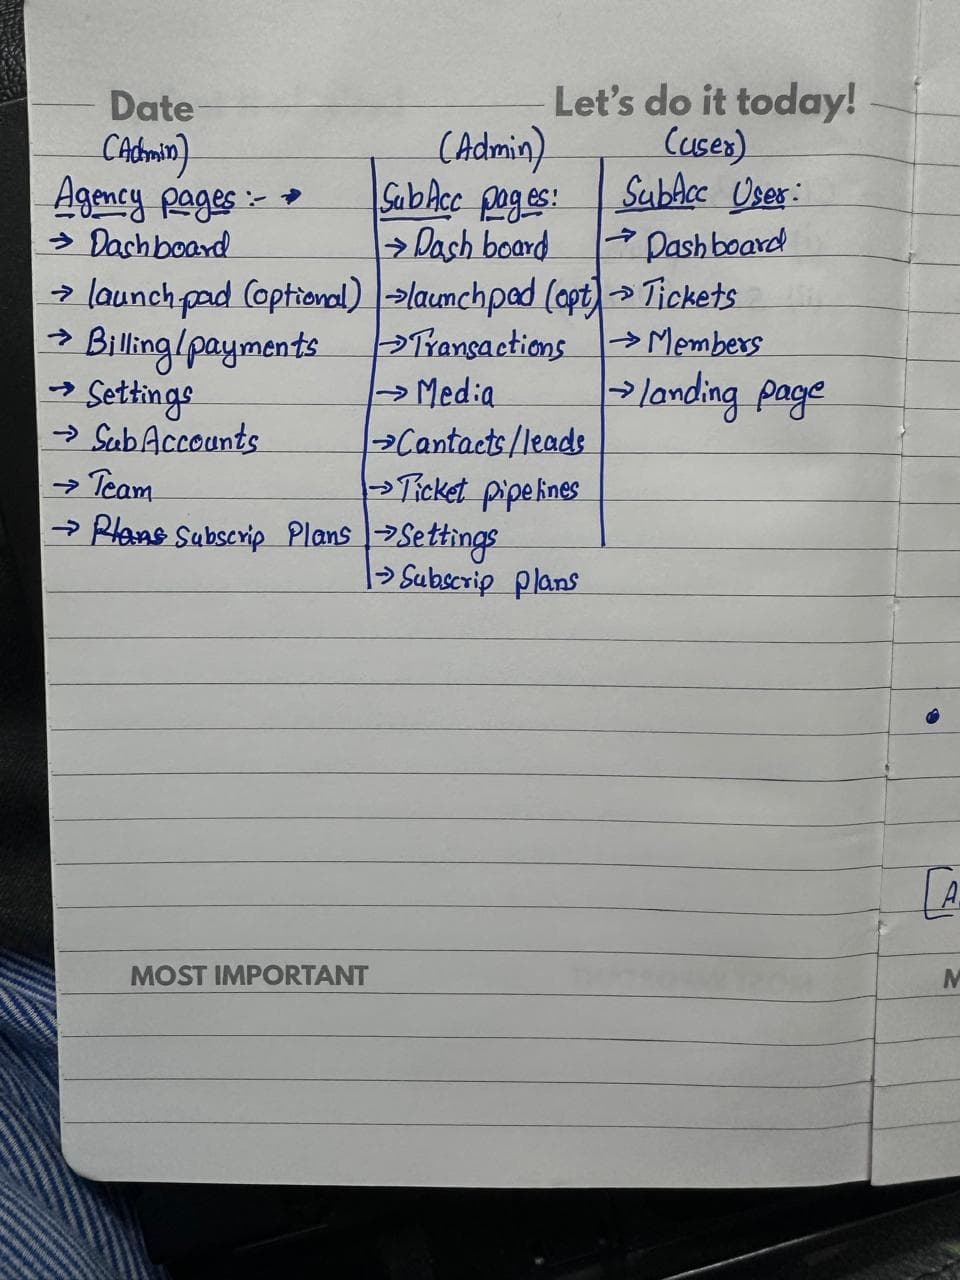 Date
Let's do it today!
(Admin)
Agency pages :- →
→ Dashboard
→ launchpad (optional)
→ Billing/payments
→ Settings
→ SubAccounts
→ Team
→ Plans Subscrip Plans
(Admin)
SubAcc pages:
→ Dashboard
→ launchpad (opt)
→ Transactions
→ Media
→ Cantacts/leads
→ Ticket pipelines
→ Settings
→ Subscrip plans
(user)
SubAcc User:
→ Dashboard
→ Tickets
→ Members
→ landing page
MOST IMPORTANT